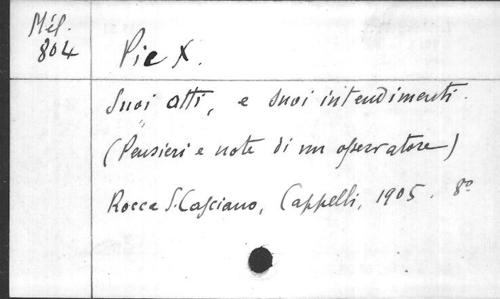 Mél.
804
Pie X.
Suoi atti, e suoi intendimenti.
(Pensieri e note di un osservatore)
Rocca S. Casciano, Cappelli, 1905. 8º